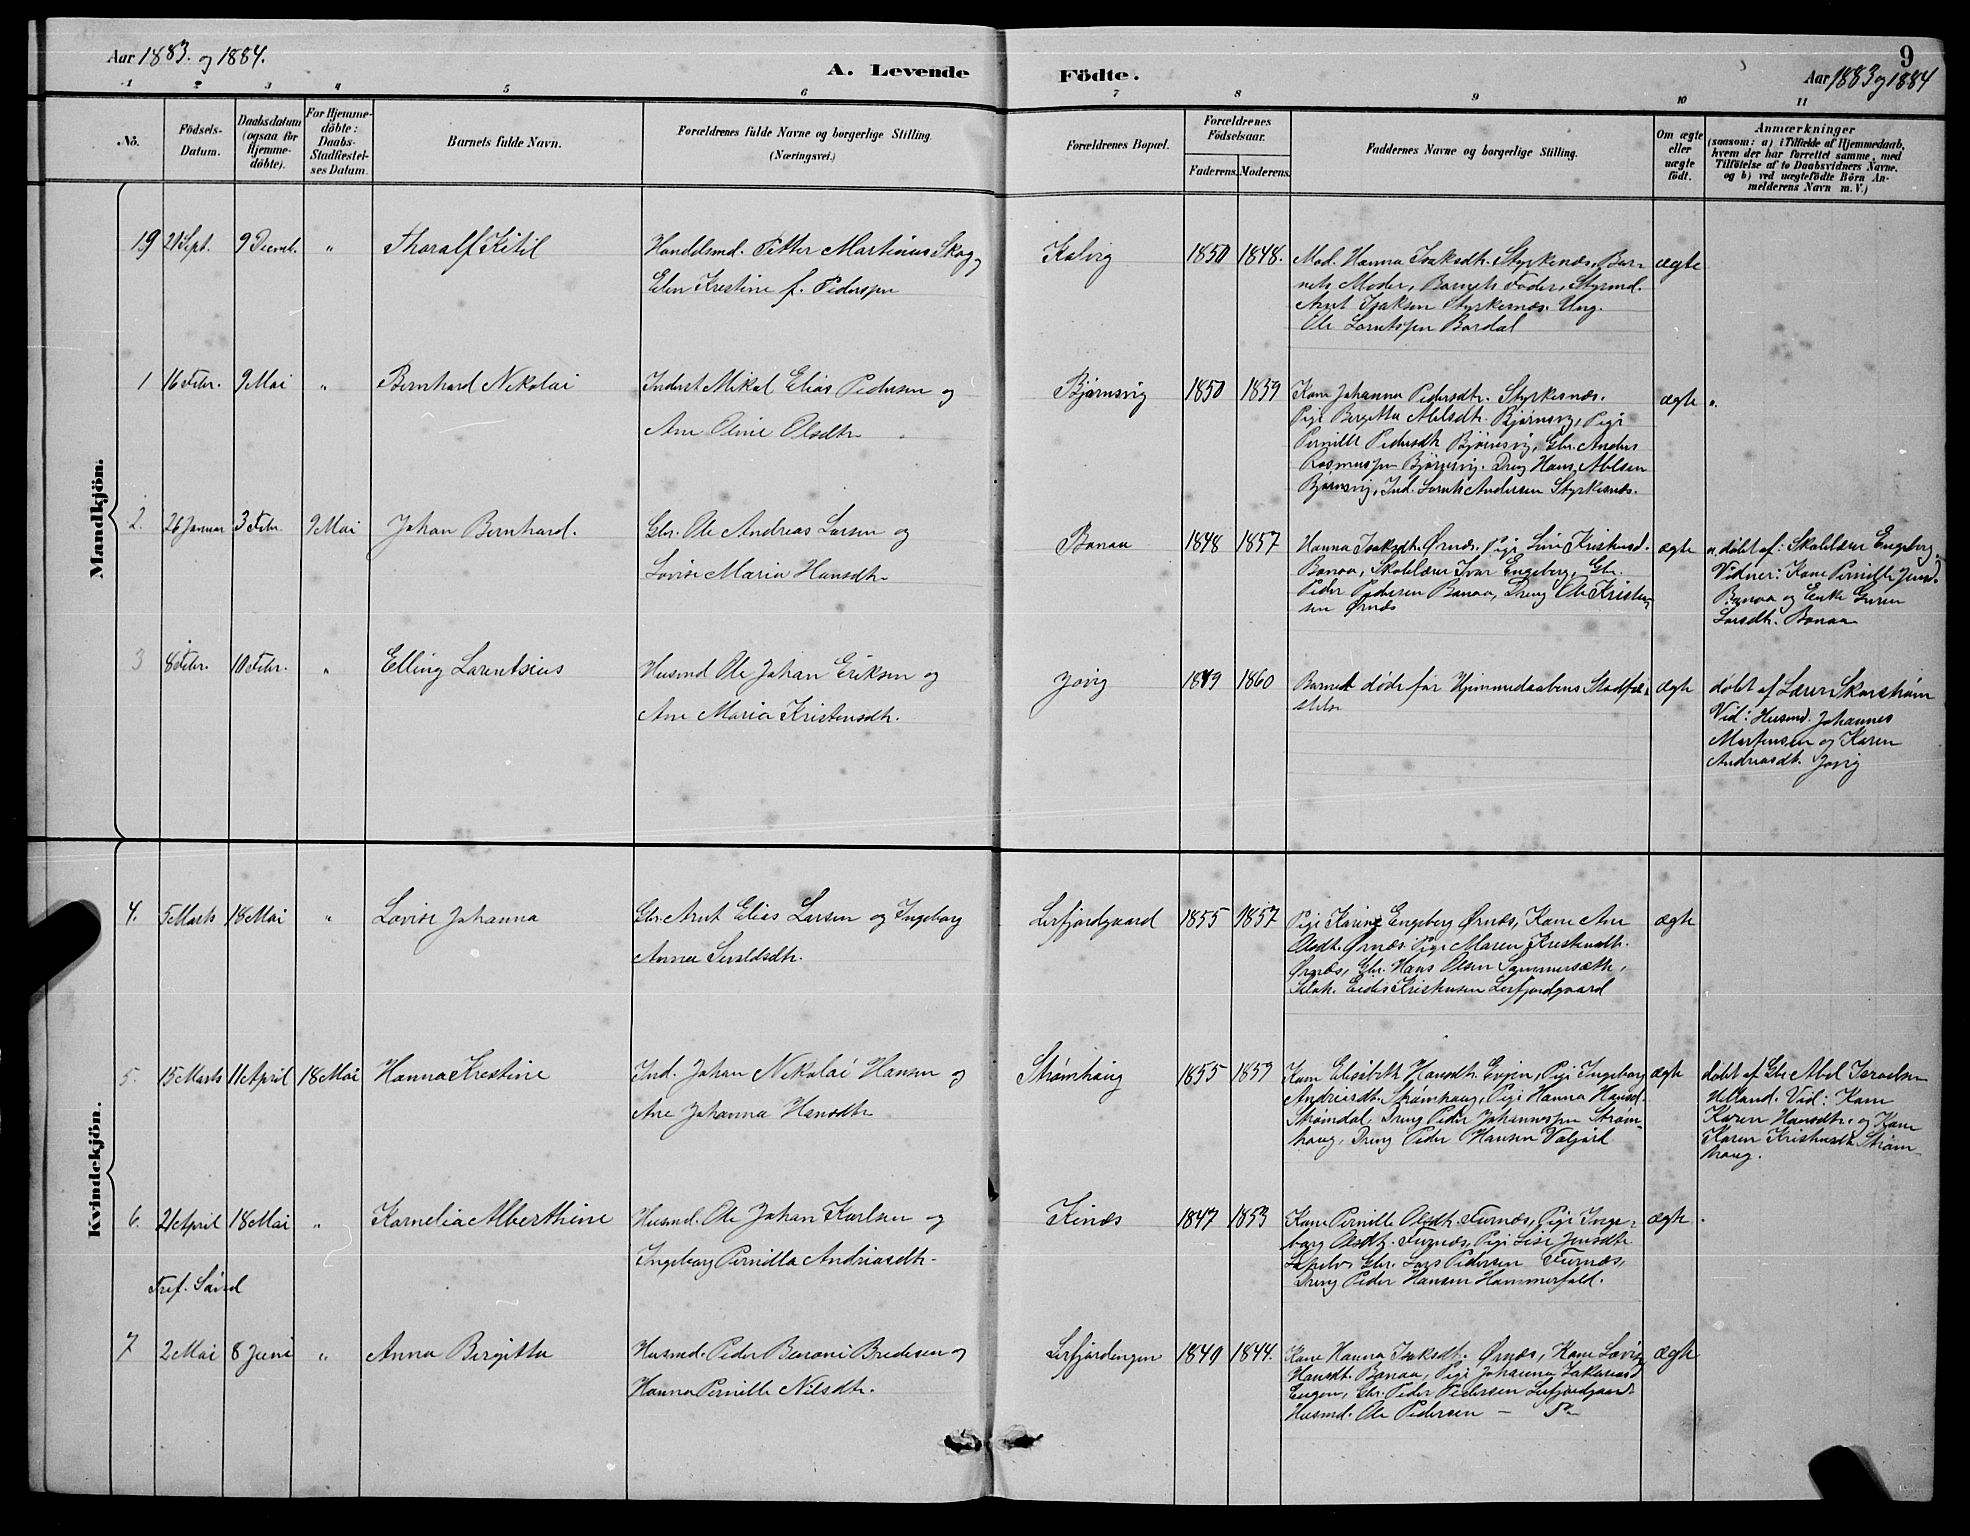 Aar 1883. og 1884.
A. Levende Födte.
9
Aar 1883 og 1884
1 2 3 4 5 6 7 8 9 10 11
No.
Födsels-
Datum.
Daabsdatum
(ogsaa for
Hjemme-
döbte).
For Hjemme-
döbte:
Daabs-
Stadfæstel-
ses Datum.
Barnets fulde Navn.
Forældrenes fulde Navne og borgerlige Stilling.
(Næringsvei.)
Forældrenes Bopæl.
Forældrenes
Födselsaar.
Faderens. Moderens.
Faddernes Navne og borgerlige Stilling.
Om ægte
eller
uægte
født.
Anmærkninger
(saasom: a) i Tilfælde af Hjemmedaab,
hvem der har forrettet samme, med
Tilföielse af to Daabsvidners Navne.
og b) ved uægtefödte Börn An-
melderens Navn m. V.)
Mandkjön.
19 21 Sept. 9 Decmb. " Tharalf Kitil
Handelsmd. Petter Martinius Skog
Elen Krestine f. Pedersen
Kalvig 1850 1848.
Mad. Hanna Isaksdtr. Styrkenæs, Bar-
nets Moder, Barnets Fader, Styrmd.
Arnt Isaksen Styrkesnæs. Ung.
Ole Lorntsen Bardal
ægte
1 16 Febr. 9 Mai " Bernhard Nikolai
Inderst Mikal Elias Pedersen og
Ane Oline Olsdtr
Bjørnsvig 1850 1859
Kone Johanna Pedersdtr. Styrkesnæs.
Pige Bergitta Abelsdtr. Bjørnsvig, Pige
Pernille Pedersdtr Bjørnsvig, Gbr. Anders
Rasmussen Bjørnsvig. Dreng Hans Abelsen
Bjørnsvig, Ind. Lornts Andersen Styrkesnæs.
ægte "
2. 26 Januar 3 Febr. 9 Mai Johan Bernhard.
Gbr. Ole Andreas Larsen og
Lovise Maria Hansdtr.
Bonaa 1848 1857
Hanna Isaksdtr. Ørnæs. Pige Line Kristensd.
Bonaa, Skolelærer Ivar Engeberg, Gbr.
Peder Pedersen Bonaa, Dreng Ole Kristen-
sen Ørnæs
ægte
", døbt af: Skolelærer Engeberg.
Vidner: Kone Pernille Jensd.
Bonaa og Enke Guren
Larsdtr. Bonaa
3 8 Febr. 10 Febr. " Elling Larentsius
Husmd Ole Johan Eriksen og
Ane Maria Kristensdtr.
Jovig 1849 1860
Barnet døde før Hjemmedaabens Stadfæ-
stelse
ægte
døbt af Lærer Skarstrøm
Vid: Husmd. Johannes
Martensen og Karen
Andreasdt. Jovig
Kvindekjön.
4. 5 Marts 18 Mai " Lovise Johanna
Gbr. Arnt Elias Larsen og Ingeborg
Anna Sivaldsdtr.
Lerfjordgaard 1855 1857
Pige Karine Engeberg Ørnæs, Kone Ane
Olsdt. Ørnæs Pige Maren Kristensdtr.
Ørnæs, Gbr. Hans Olsen Sommersæth,
Kristensen Lerfjordgaard
ægte
5. 15 Marts 11 April 18 Mai Hanna Krestine
Ind. Johan Nikolai Hansen og
Ane Johanna Hansdtr
Strømhaug 1855 1859
Kone Elisabeth Hansdtr. Evjen, Pige Ingeborg
Andreasdt. Strømhaug, Pige Hanna Hansd.
Strømdal, Dreng Peder Johannessen Strøm-
haug, Dreng Peder Hansen Valjord
ægte
døbt af Gbr Abel Israelsen
Helland. Vid: Kone
Karen Hansdtr. og Kone
Karen Kristensdt. Strøm
haug.
6. 21 April 18 Mai " Kornelia Alberthine
Husmd. Ole Johan Karlsen og
Ingeborg Pernilla Andreasdtr.
Kinæs 1847 1853
Kone Pernille Olsdtr. Furnæs, Pige Inge-
borg Olsdtr. Furnæs, Pige Lise Jensdtr
Gbr. Lars Pedersen Furnæs,
Dreng Peder Hansen Hammerfald.
ægte
Tref. Sønd
7 2 Mai 8 Juni " Anna Birgitta
Husmd. Peder Benoni Bredesen og
Hanna Pernille Nilsdtr.
Lerfjordingen 1840 1844.
Kone Hanna Isaksdt. Ørnæs, Kone Lovise
Hansdt. Bonaa, Pige Johanna Zakariasd
Engen, Gbr. Peder Pedersen Lerfjordgaard
Husmd. Ole Pedersen —
ægte